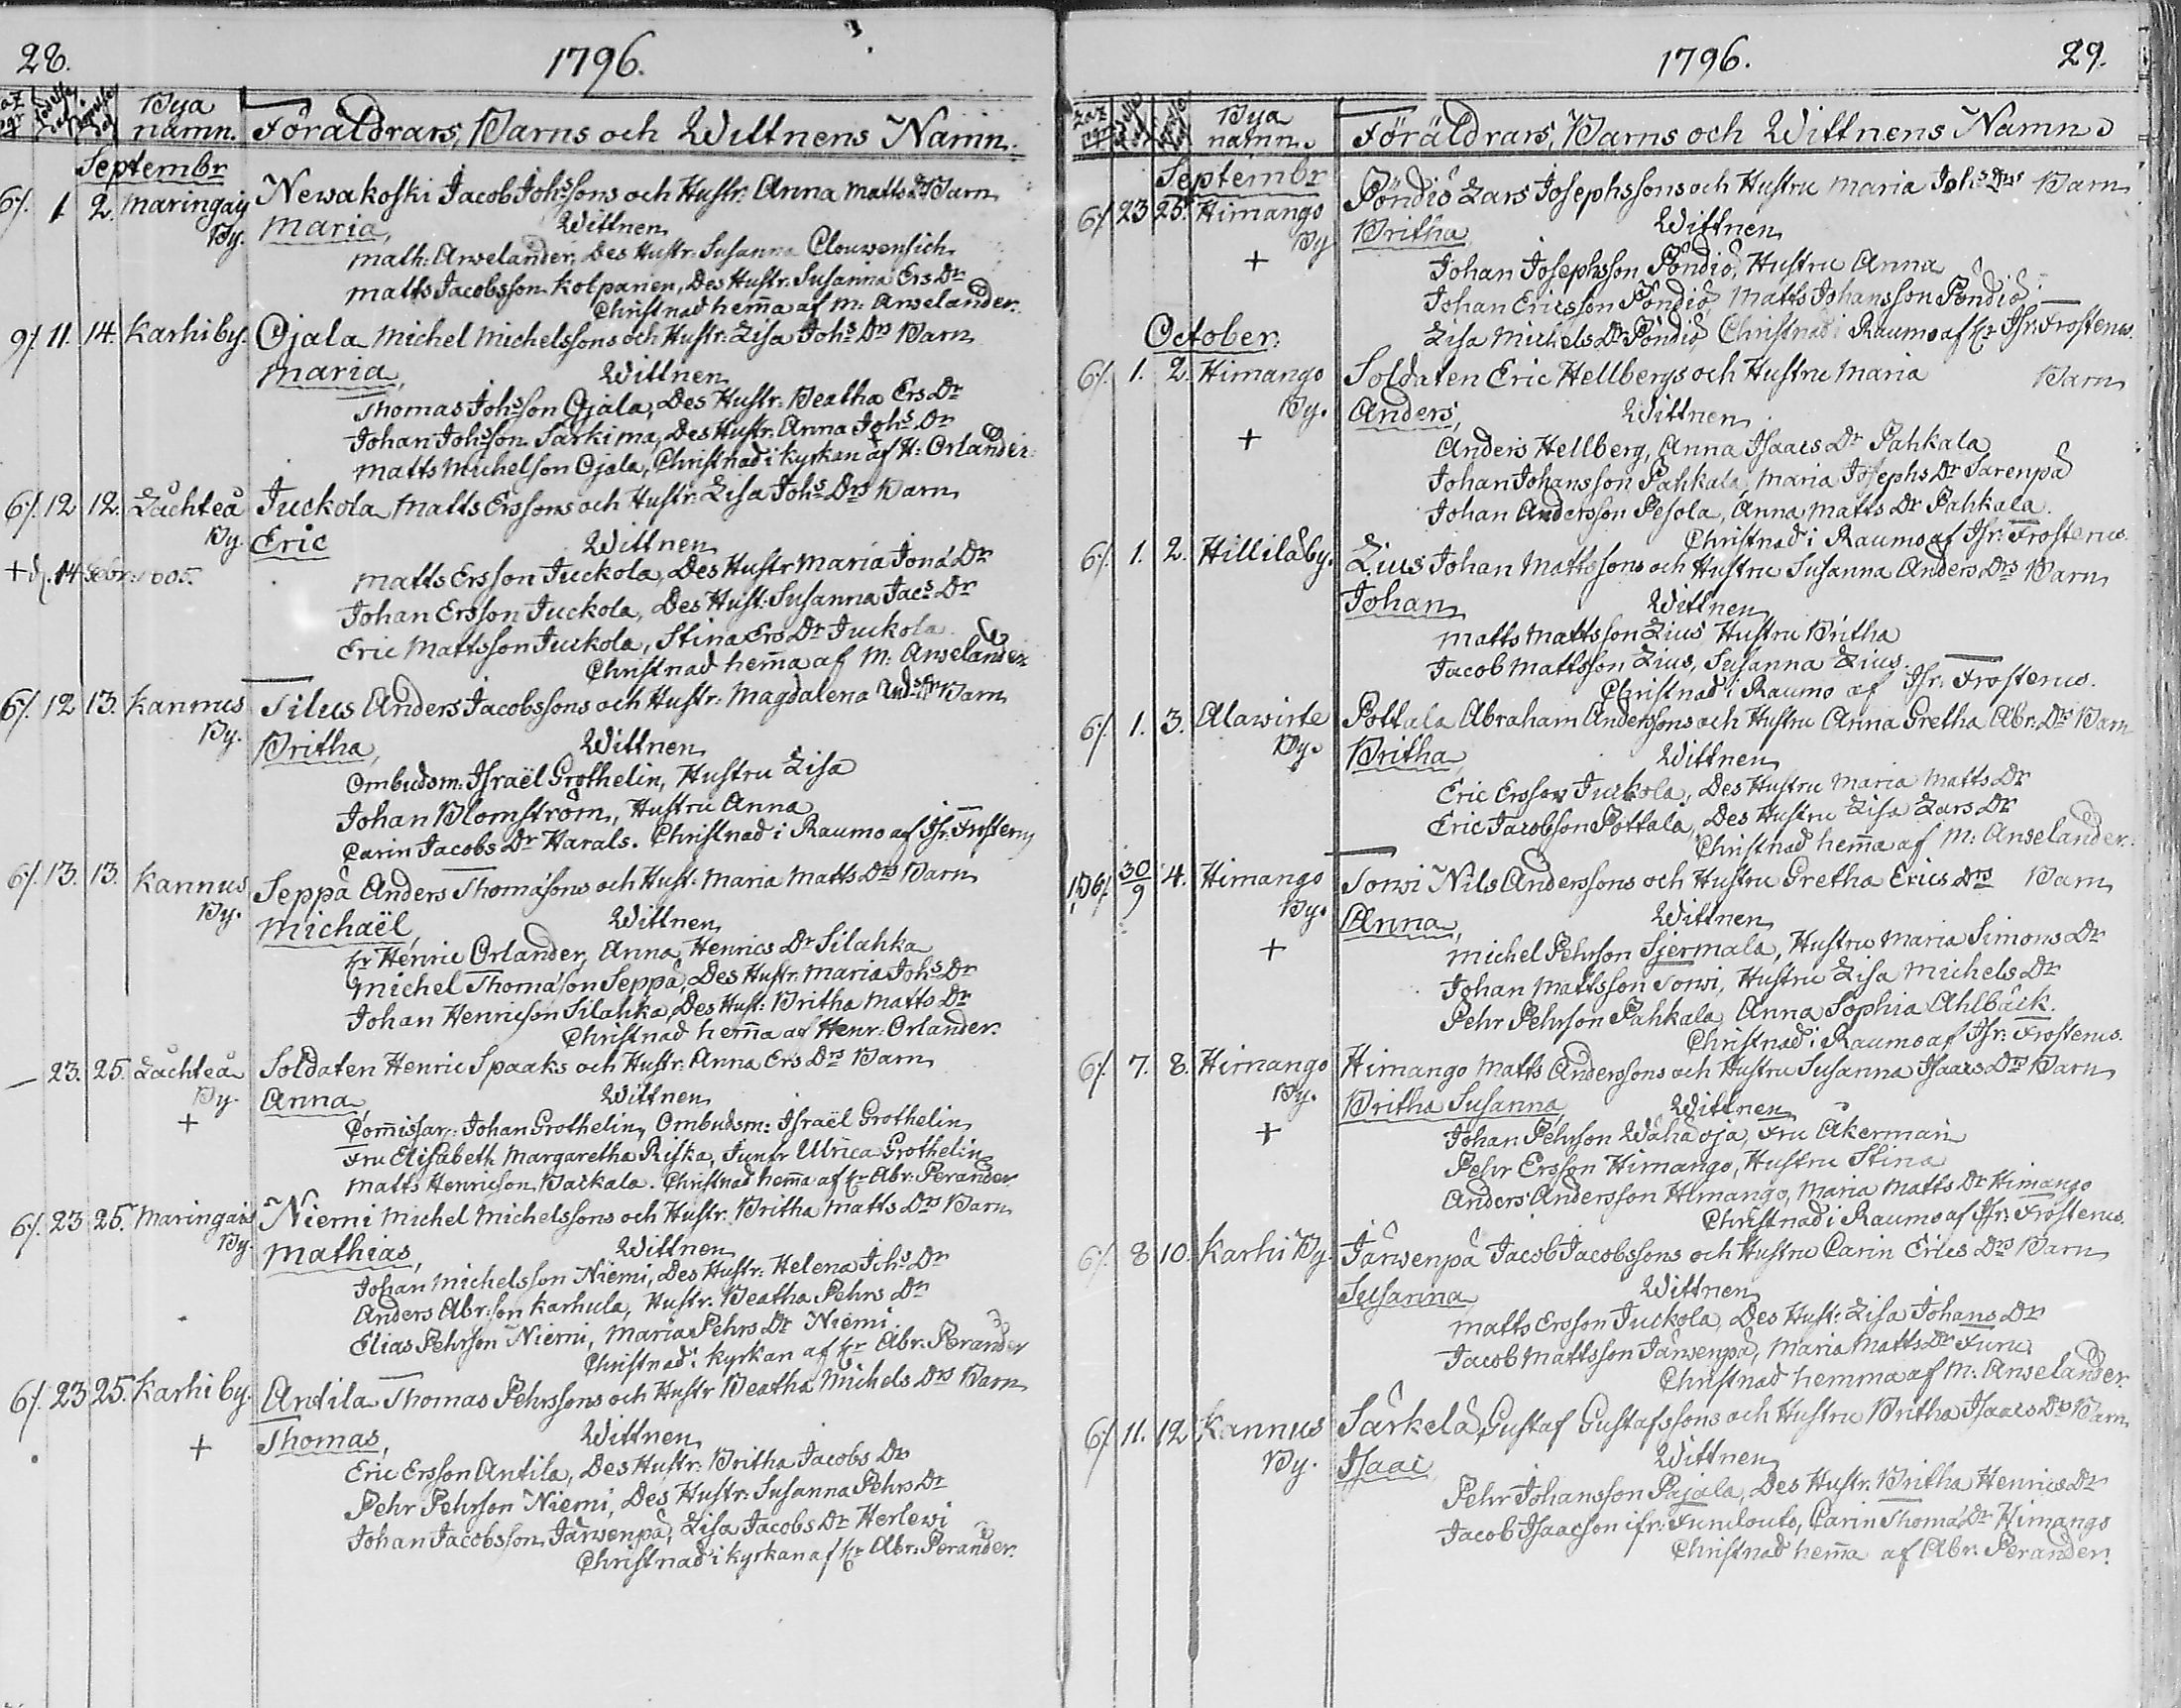 28.
1796.
Bya
namn. Föräldrars, Barns och Wittnens Namn.
Septembr
6/. 1. 2. Maringais Newakoski Jacob Johssons och Hustr: Anna Matts Drs Barn
By. Maria, Wittnen
Math: Anselander, Des Hustr: Susanna Clouwensich
Matts Jacobsson Kolpanen, Des Hustr: Susanna Ers Dr
Christnad hem̄a af M: Anselander.
9/. 11. 14. Karhi by. Ojala Michel Michelssons och Hustr: Lisa Johs Drs Barn
Maria, Wittnen
Thomas Johsson Ojala, Des Hustr: Beatha Ers Dr
Johan Johsson Särkima, Des Hustr: Anna Johs Dr
Matts Michelson Ojala, Christnad i kyrkan af H: Orlander
6/. 12 12. Låchteå Juckola Matts Erssons och Hustr: Lisa Johs Drs Barn
By. Eric Wittnen
+ d. 14 Febr: 1805. Matts Ersson Juckola, Des Hustr Maria Jona Dr
Johan Ersson Juckola, Des Hust: Susanna Jacs Dr
Eric Mattsson Juckola, Stina Ers Dr Juckola
Christnad hem̄a af M: Anselander
6/. 12 13. Kannus Tilus Anders Jacobssons och Hustr: Magdalena Ands Drs Barn
By. Britha, Wittnen
Ombudsm: Israël Grothelin, Hustru Lisa
Johan Blomström, Hustru Anna
Carin Jacobs Dr Harals. Christnad i Raumo af Isr: Frosterus
6/. 13. 13. Kannus Seppä Anders Thomasons och Hust: Maria Matts Drs Barn
By. Michaël, Wittnen
Hr Henric Orlander, Anna Henrics Dr Silahka
Michel Thomason Seppä, Des Hustr: Maria Johs Dr
Johan Henricson Silahka, Des Hust: Britha Matts Dr
Christnad hem̄a af Henr: Orlander.
— 23. 25. Låchteå Soldaten Henric Spaaks och Hustr: Anna Ers Drs Barn
By. Anna Wittnen
+ Com̄issar: Johan Grothelin, Ombudsm: Israël Grothelin
Fru Elisabeth Margaretha Riska, Junfr Ulrica Grothelin
Matts Henricson Backala. Christnad hem̄a af Hr Abr: Perander
6/. 23 25. Maringais Niemi Michel Michelssons och Hustr: Britha Matts Drs Barn
By. Mathias, Wittnen
Johan Michelsson Niemi, Des Hustr: Helena Johs Dr
Anders Abr:son Karhula, Hustr: Beatha Pehrs Dr
Elias Pehrson Niemi, Maria Pehrs Dr Niemi
Christnad i kyrkan af Hr Abr: Perander
6/. 23 25. Karhi by. Antila Thomas Pehrssons och Hustr Beatha Michels Drs Barn
+ Thomas, Wittnen
Eric Ersson Antila, Des Hustr: Britha Jacobs Dr
Pehr Pehrson Niemi, Des Hustr: Susanna Pehrs Dr
Johan Jacobsson Järwenpä, Lisa Jacobs Dr Herlewi
Christnad i kyrkan af Hr Abr: Perander.
1796. 29.
Bya
namn. Föräldrars, Barns och Wittnens Namn
Septembr
6/. 23 25. Himango Pöndiö Lars Josephssons och Hustru Maria Johs Drs Barn
By Britha Wittnen
+ Johan Josephsson Pöndiö, Hustru Anna
Johan Ericsson Pöndiö, Matts Johansson Pöndiö
Lisa Michels Dr Pöndiö Christnad i Raumo af Hr Isr: Frosterus.
October.
6/. 1. 2. Himango Soldaten Eric Hellbergs och Hustru Maria Barn
By. Anders, Wittnen
+ Anders Hellberg, Anna Isaacs Dr Pahkala
Johan Johansson Pahkala, Maria Josephs Dr Sarenpä
Johan Andersson Pesola, Anna Matts Dr Pahkala
Christnad i Raumo af Isr: Frosterus.
6/. 1. 2. Hillilä by. Lius Johan Mattssons och Hustru Susanna Anders Drs Barn
Johan Wittnen
Matts Mattsson Lius Hustru Britha
Jacob Mattsson Lius, Susanna Lius.
Christnad i Raumo af Isr: Frosterus.
6/. 1. 3. Alawirte Pottala Abraham Anderssons och Hustru Anna Gretha Abr: Drs Barn
By. Britha Wittnen
Eric Ersson Juckola, Des Hustru Maria Matts Dr
Eric Jacobson Pottala, Des Hustru Lisa Lars Dr
Christnad hem̄a af M: Anselander.
30/9 4. Himango Torwi Nils Anderssons och Hustru Gretha Erics Drs Barn
By. Anna, Wittnen
+ Michel Pehrson Tjermala, Hustru Maria Simons Dr
Johan Mattsson Torwi, Hustru Lisa Michels Dr
Pehr Pehrson Pahkala Anna Sophia Ahlbäck.
Christnad i Raumo af Isr: Frosterus.
6/. 7. 8. Himango Himango Matts Anderssons och Hustru Susanna Isaacs Drs Barn
By. Britha Susanna Wittnen
+ Johan Pehrson Wähäoja, Fru Åkerman
Pehr Ersson Himango, Hustru Stina
Anders Andersson Himango, Maria Matts Dr Himango
Christnad i Raumo af Isr: Frosterus.
6/. 8 10. Karhi By. Järwenpä Jacob Jacobssons och Hustru Carin Erics Drs Barn
Susanna Wittnen
Matts Ersson Juckola, Des Hust: Lisa Johans Dr
Jacob Mattsson Järwenpä, Maria Matts Dr Furu
Christnad hemma af M: Anselander.
6/. 11. 12 Kannus Särkelä, Gustaf Gustafssons och Hustru Britha Isaacs Drs Barn
By. Isaac Wittnen
Pehr Johansson Pajala, Des Hustr. Britha Henrics Dr
Jacob Isaacson ifr: Fundouts, Carin Thoma Dr Himango
Christnad hem̄a af Abr: Perander.